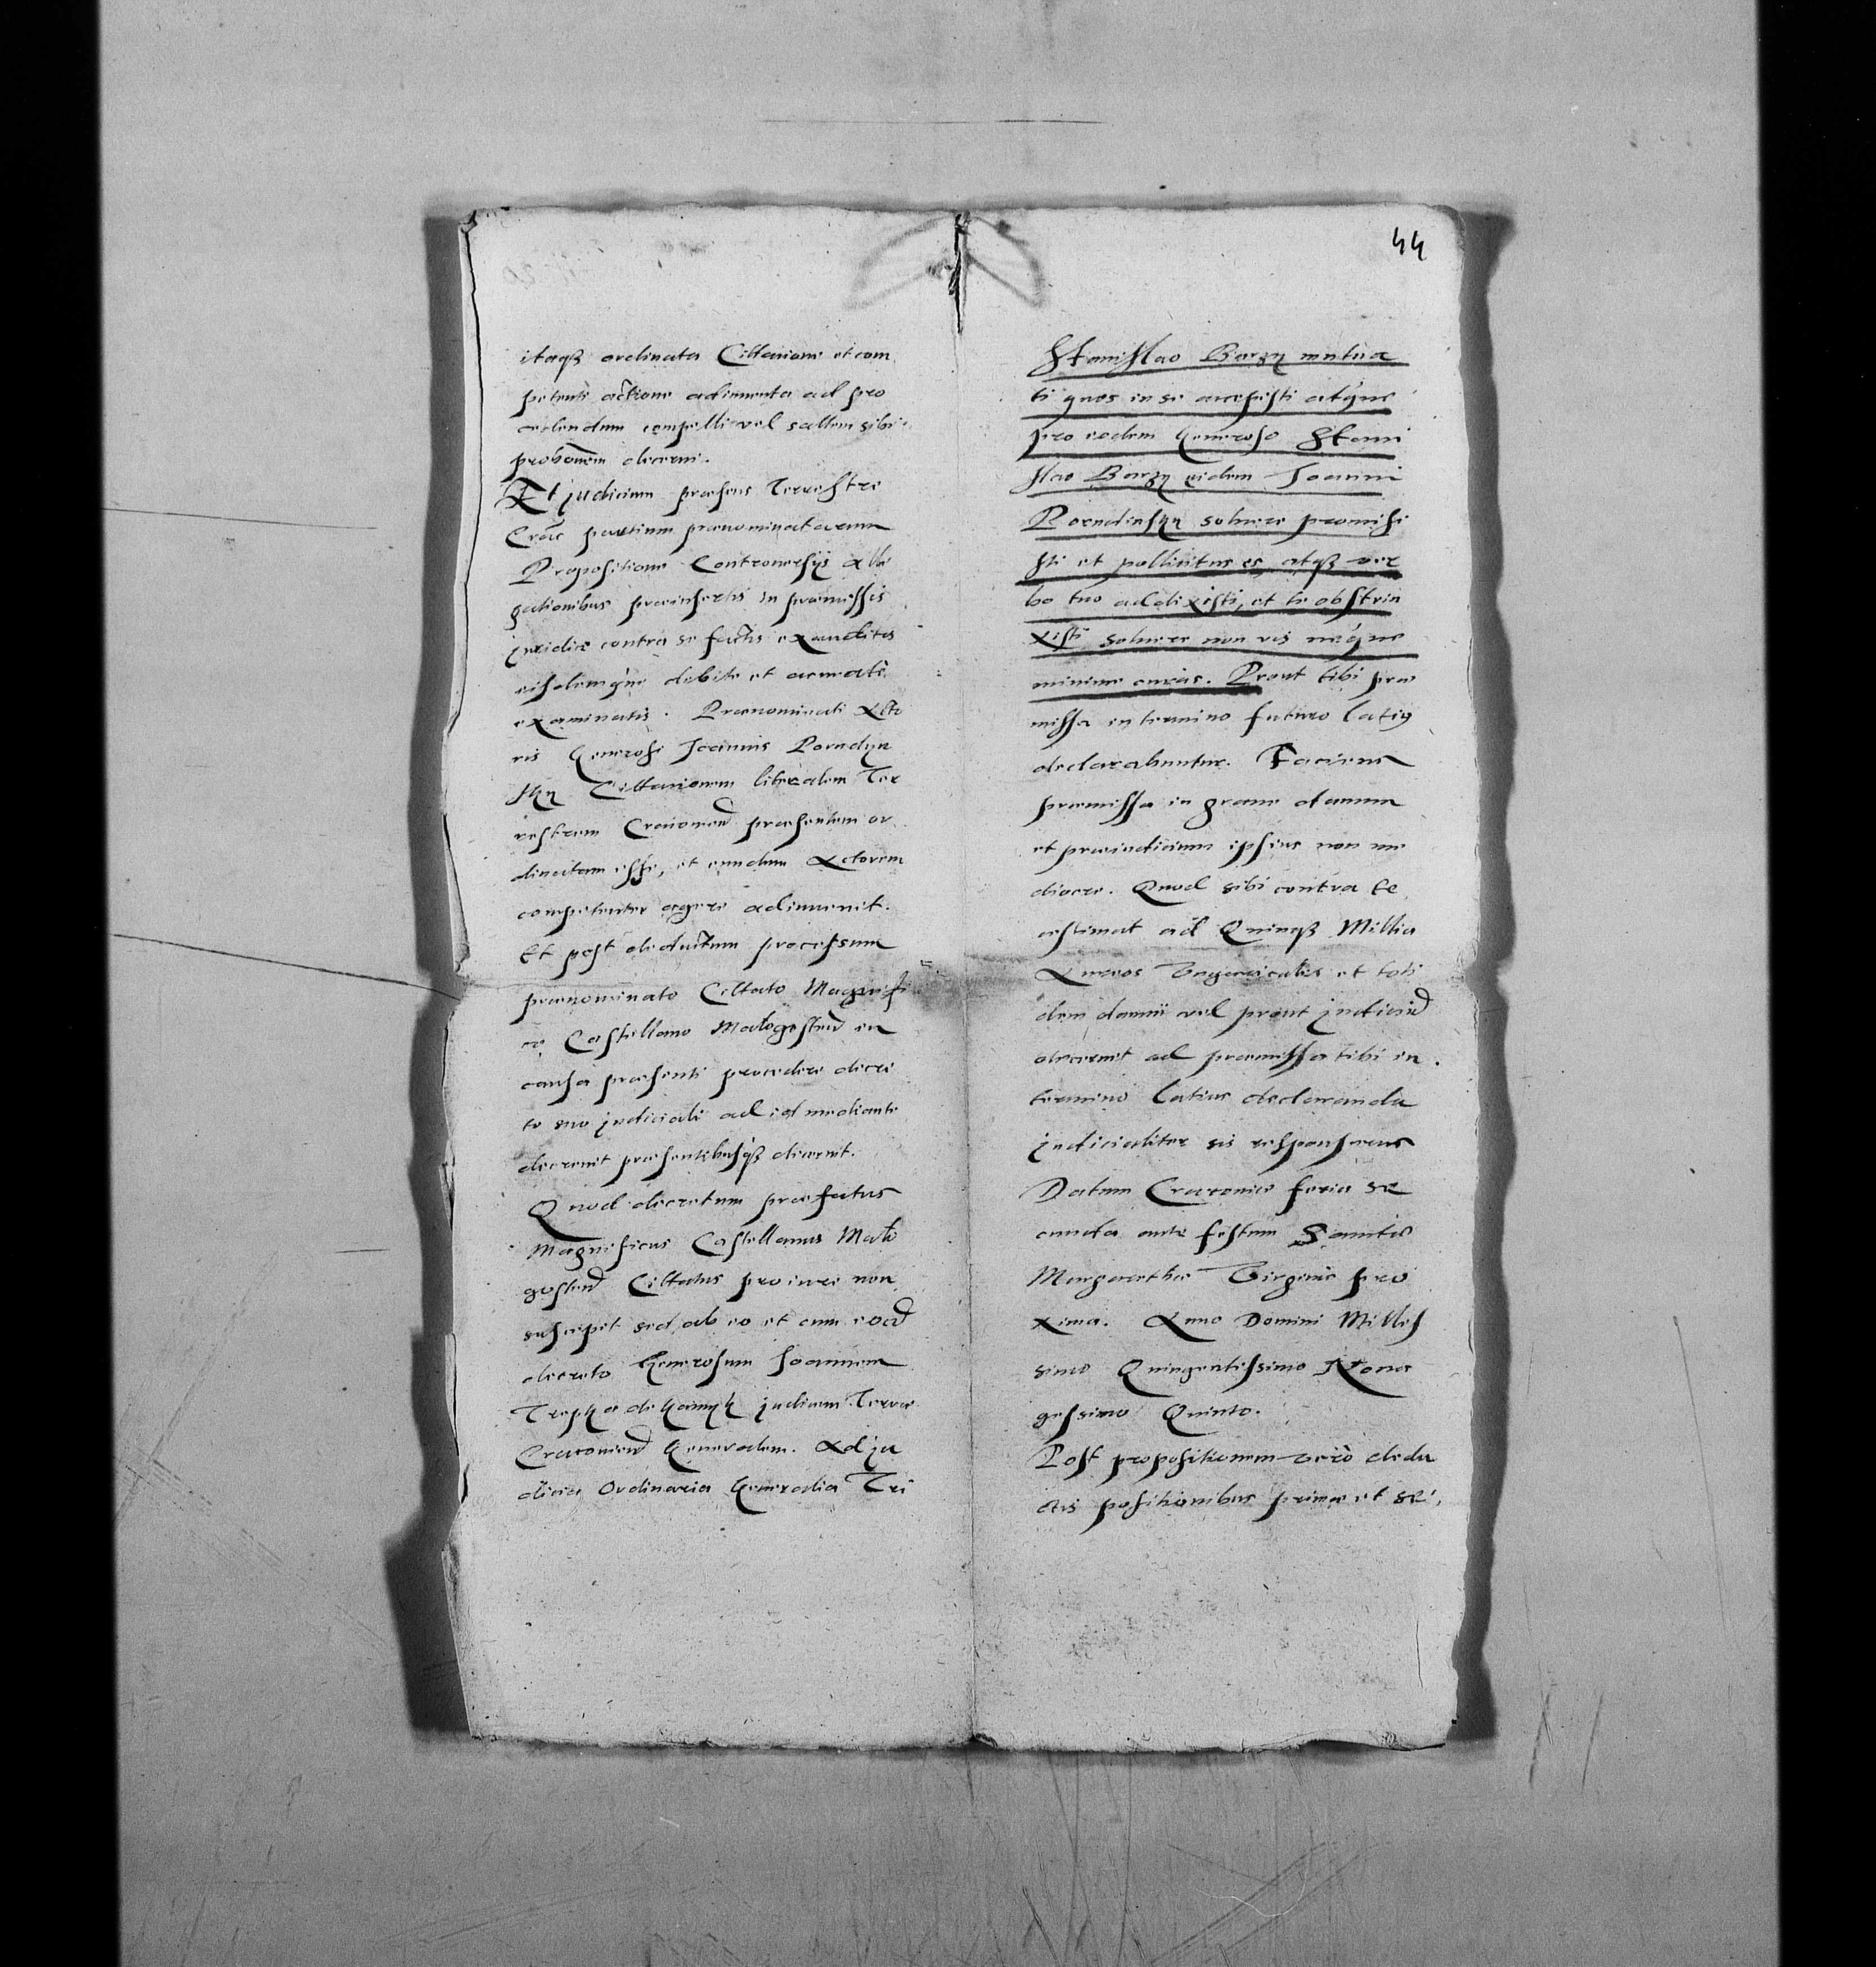 itaqß ordinata Cittatione et com
petenti actione adinuenta ad pro
cedendum compelli vel saltem sibi
probationem decerni.
Et judicium præsens Terrestre
Crac partium prænominatarum
Propositione Controuersijs alle
gationibus præinsertis in præmissis
juridice contra se factis exauditis
eisdemque debite et accurate
examinatis. Prænominati Acto
ris Generosi Joannis Porudyn
sky Cittationem literalem Ter
restrem Cracouien præsentem or
dinatam esse, et eundem Actorem
competenter agere adinuenit.
Et post deductum processum
prænominato Cittato Magnifi
co Castellano Malogosten in
causa præsenti procedere decre
to suo judiciali ad id mediante
decreuit præsentibusqß decernit.
Quod decretum præfatus
Magnificus Castellanus Malo
gosten Cittatus pro iure non
suscepit sed ab eo et cum eod
decreto Generosum Joannem
judicem Terræ
Cracouien Generalem. Ad ju
dicia Ordinaria Generalia Tri
44
Stanislao Barzy mutua
ti quos in se accepisti atque
pro eodem Generoso Stani
slao Barzy eidem Joanni
Porudinsky soluere promisi
sti et pollicitus es atqß ver
bo tuo addixisti, et te obstrin
xisti soluere non vis neque
minime curas. Prout tibi præ
missa in termino futuro latius
declarabuntur. Faciens
præmissa in graue damnum
et præiudicium ipsius non me
diocre. Quod sibi contra te
æstimat ad Quinqß Millia
Aureos Vngaricales et toti
dem damni vel prout judiciu
decernet ad præmissa tibi in
termino latius declaranda
judicialiter sis responsurus
Datum Cracouiæ feria se
cunda ante festum Sanctæ
Margarethæ Virginis pro
xima. Anno Domini Milles
simo Quingentissimo Nona
gessimo Quinto.
Post propositionem vero dedu
ctis positionibus primæ et se